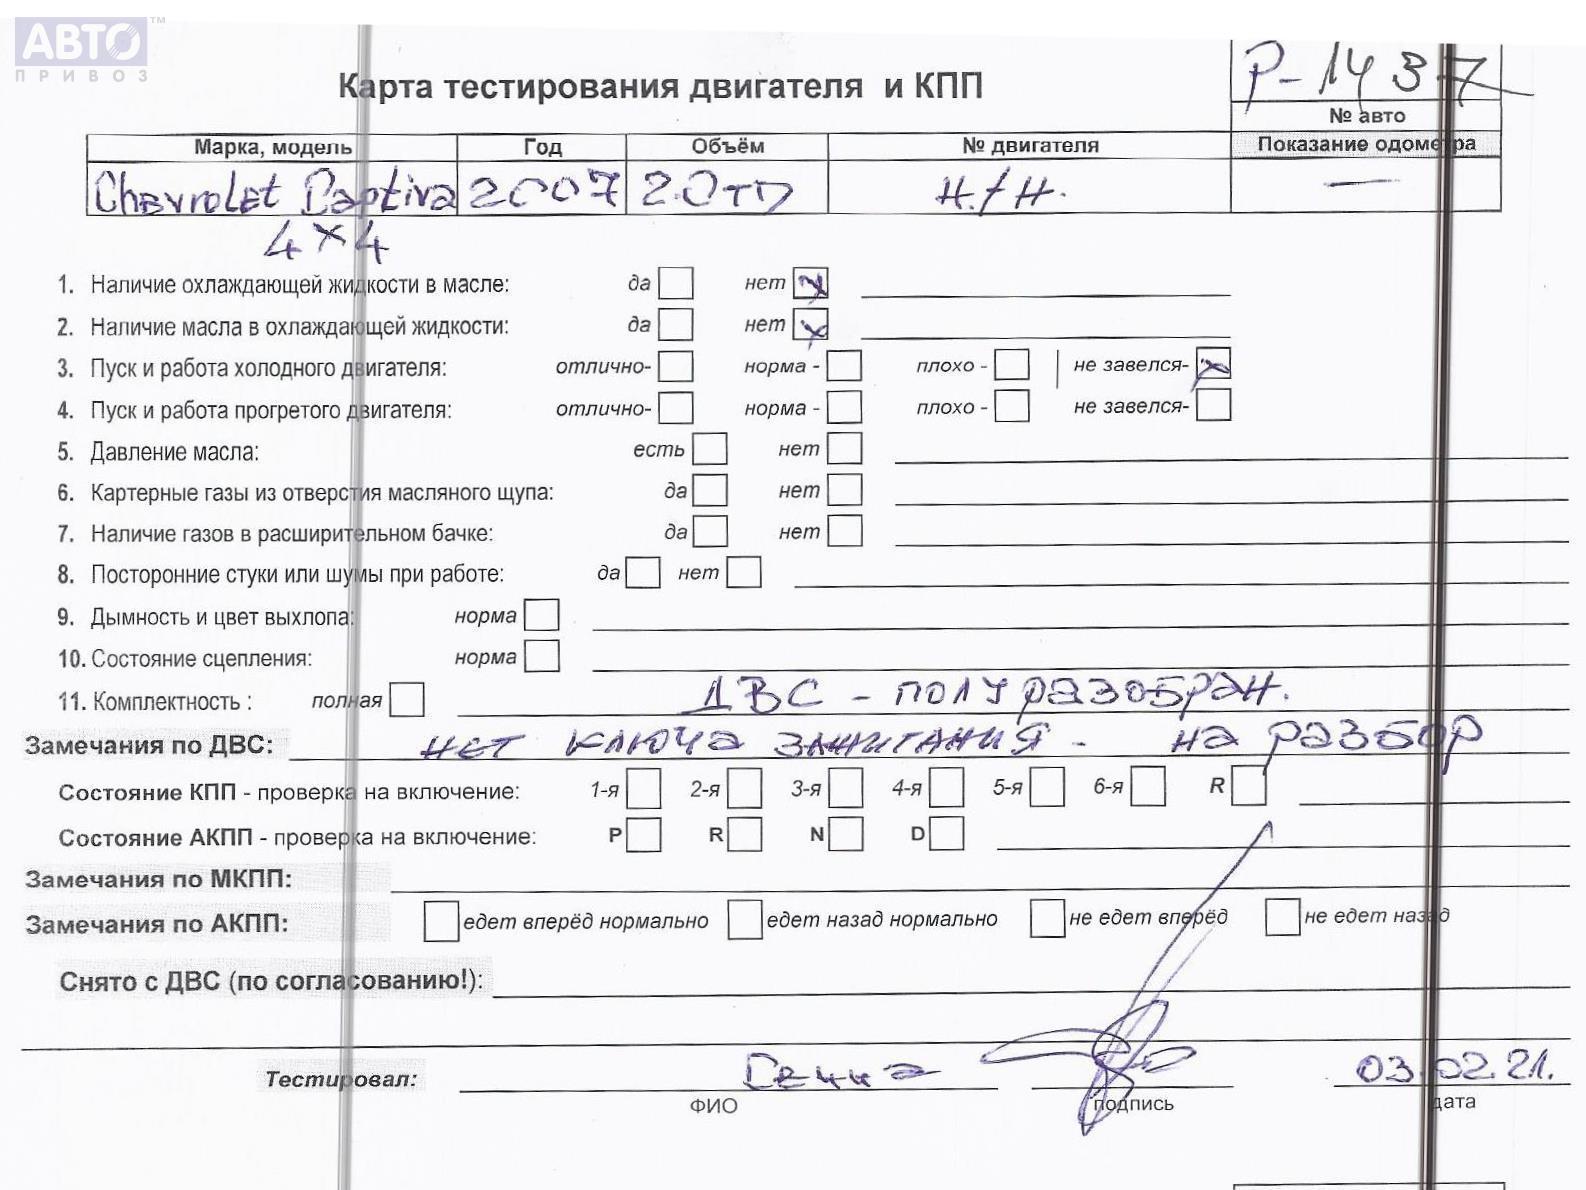 АВТО™
ПРИВОЗ
Р-1437
Карта тестирования двигателя и КПП
№ авто
Марка, модель Год Объём № двигателя Показание одометра
Chevrolet Captiva 2007 2.0TD Н/Н. —
4x4
1. Наличие охлаждающей жидкости в масле: да нет x
2. Наличие масла в охлаждающей жидкости: да нет x
3. Пуск и работа холодного двигателя: отлично- норма - плохо - не завелся- x
4. Пуск и работа прогретого двигателя: отлично- норма - плохо - не завелся-
5. Давление масла: есть нет
6. Картерные газы из отверстия масляного щупа: да нет
7. Наличие газов в расширительном бачке: да нет
8. Посторонние стуки или шумы при работе: да нет
9. Дымность и цвет выхлопа: норма
10. Состояние сцепления: норма
11. Комплектность : полная ДВС - полуразобран.
Замечания по ДВС: нет ключа зажигания - на разбор
Состояние КПП - проверка на включение: 1-я 2-я 3-я 4-я 5-я 6-я R
Состояние АКПП - проверка на включение: P R N D
Замечания по МКПП:
Замечания по АКПП: едет вперёд нормально едет назад нормально не едет вперёд не едет назад
Снято с ДВС (по согласованию!):
Тестировал: 03.02.21.
ФИО подпись дата